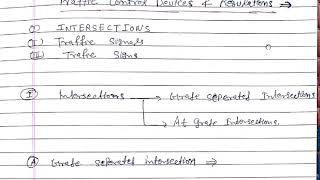 Traffic Control Devices & Regulations ⇒
① INTERSECTIONS
(II) Traffic Signals
(III) Traffic Signs
(I) Intersections → Grade Seperated Intersections
→ At Grade Intersections.
(A) Grade seperated intersection ⇒